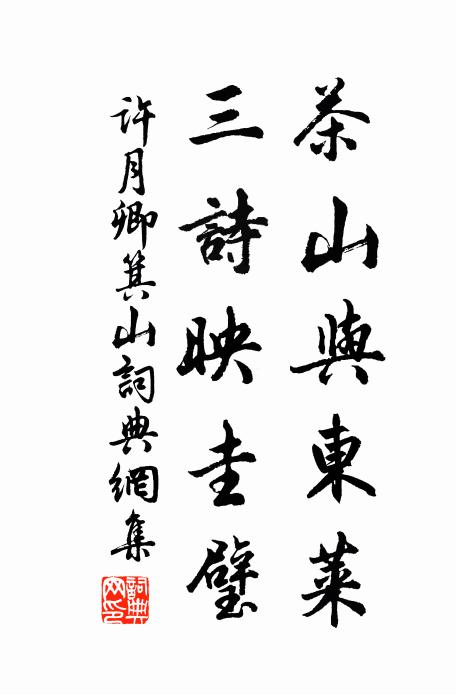 茶山與東萊
三詩映圭璧
許月卿箕山詞典網集
詞典網印